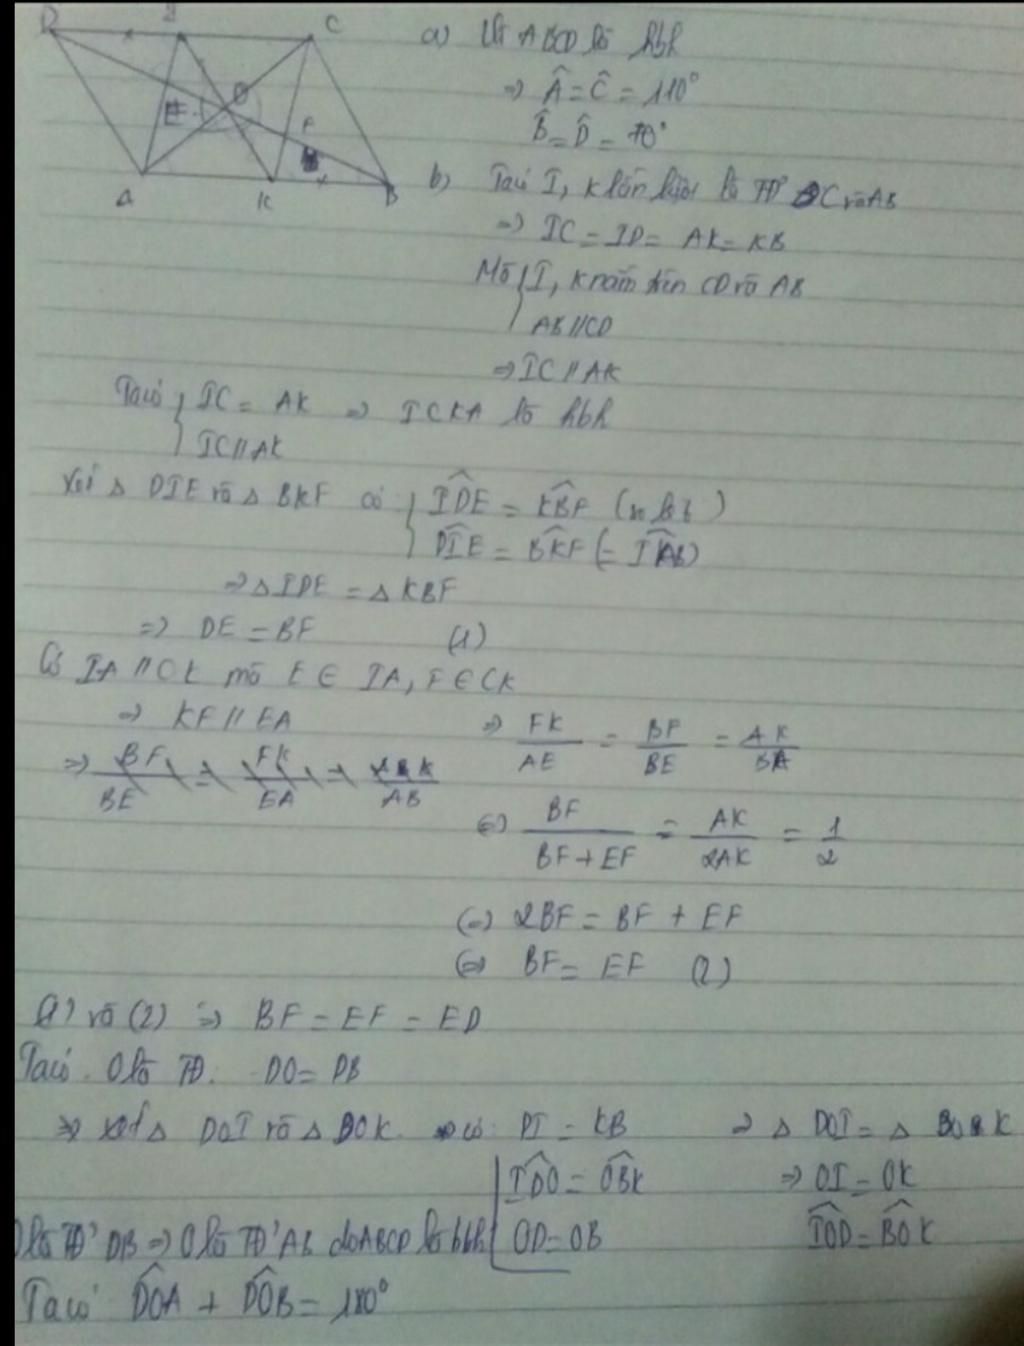 D I C
O
E F
A K B
a) Vì ABCD là hbh
=> Â = Ĉ = 110°
B̂ = D̂ = 70°
b) Ta có I, K lần lượt là TĐ DC và AB
=> IC = ID = AK = KB
Mà { I, K nằm trên CD và AB
AB // CD
=> IC // AK
Ta có { IC = AK => ICKA là hbh
IC // AK
Xét Δ DIE và Δ BKF có { IDE = KBF (so le t)
DIE = BKF (= IAB)
=> Δ IDE = Δ KBF
=> DE = BF (1)
Có IA // CK mà E ∈ IA, F ∈ CK
=> KF // EA => FK/AE = BF/BE = AK/BA
=> BF/BE = FK/EA = AK/AB
<=> BF/(BF + EF) = AK/2AK = 1/2
<=> 2BF = BF + EF
<=> BF = EF (2)
(1) và (2) => BF = EF = ED
Ta có O là TĐ. DO = DB
=> xét Δ DOI và Δ BOK có: DI = KB => Δ DOI = Δ BOK
IDO = OBK => OI = OK
O là TĐ DB => O là TĐ AB do ABCD là hbh OD = OB IOD = BOK
Ta có DOA + DOB = 180°